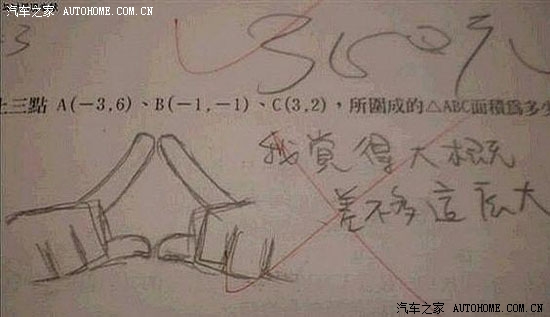 汽车之家 AUTOHOME.COM.CN
3
360元
上三點 A(−3,6)、B(−1,−1)、C(3,2)，所圍成的△ABC面積為多少
我覺得大概
差不多這麼大
汽车之家 AUTOHOME.COM.CN